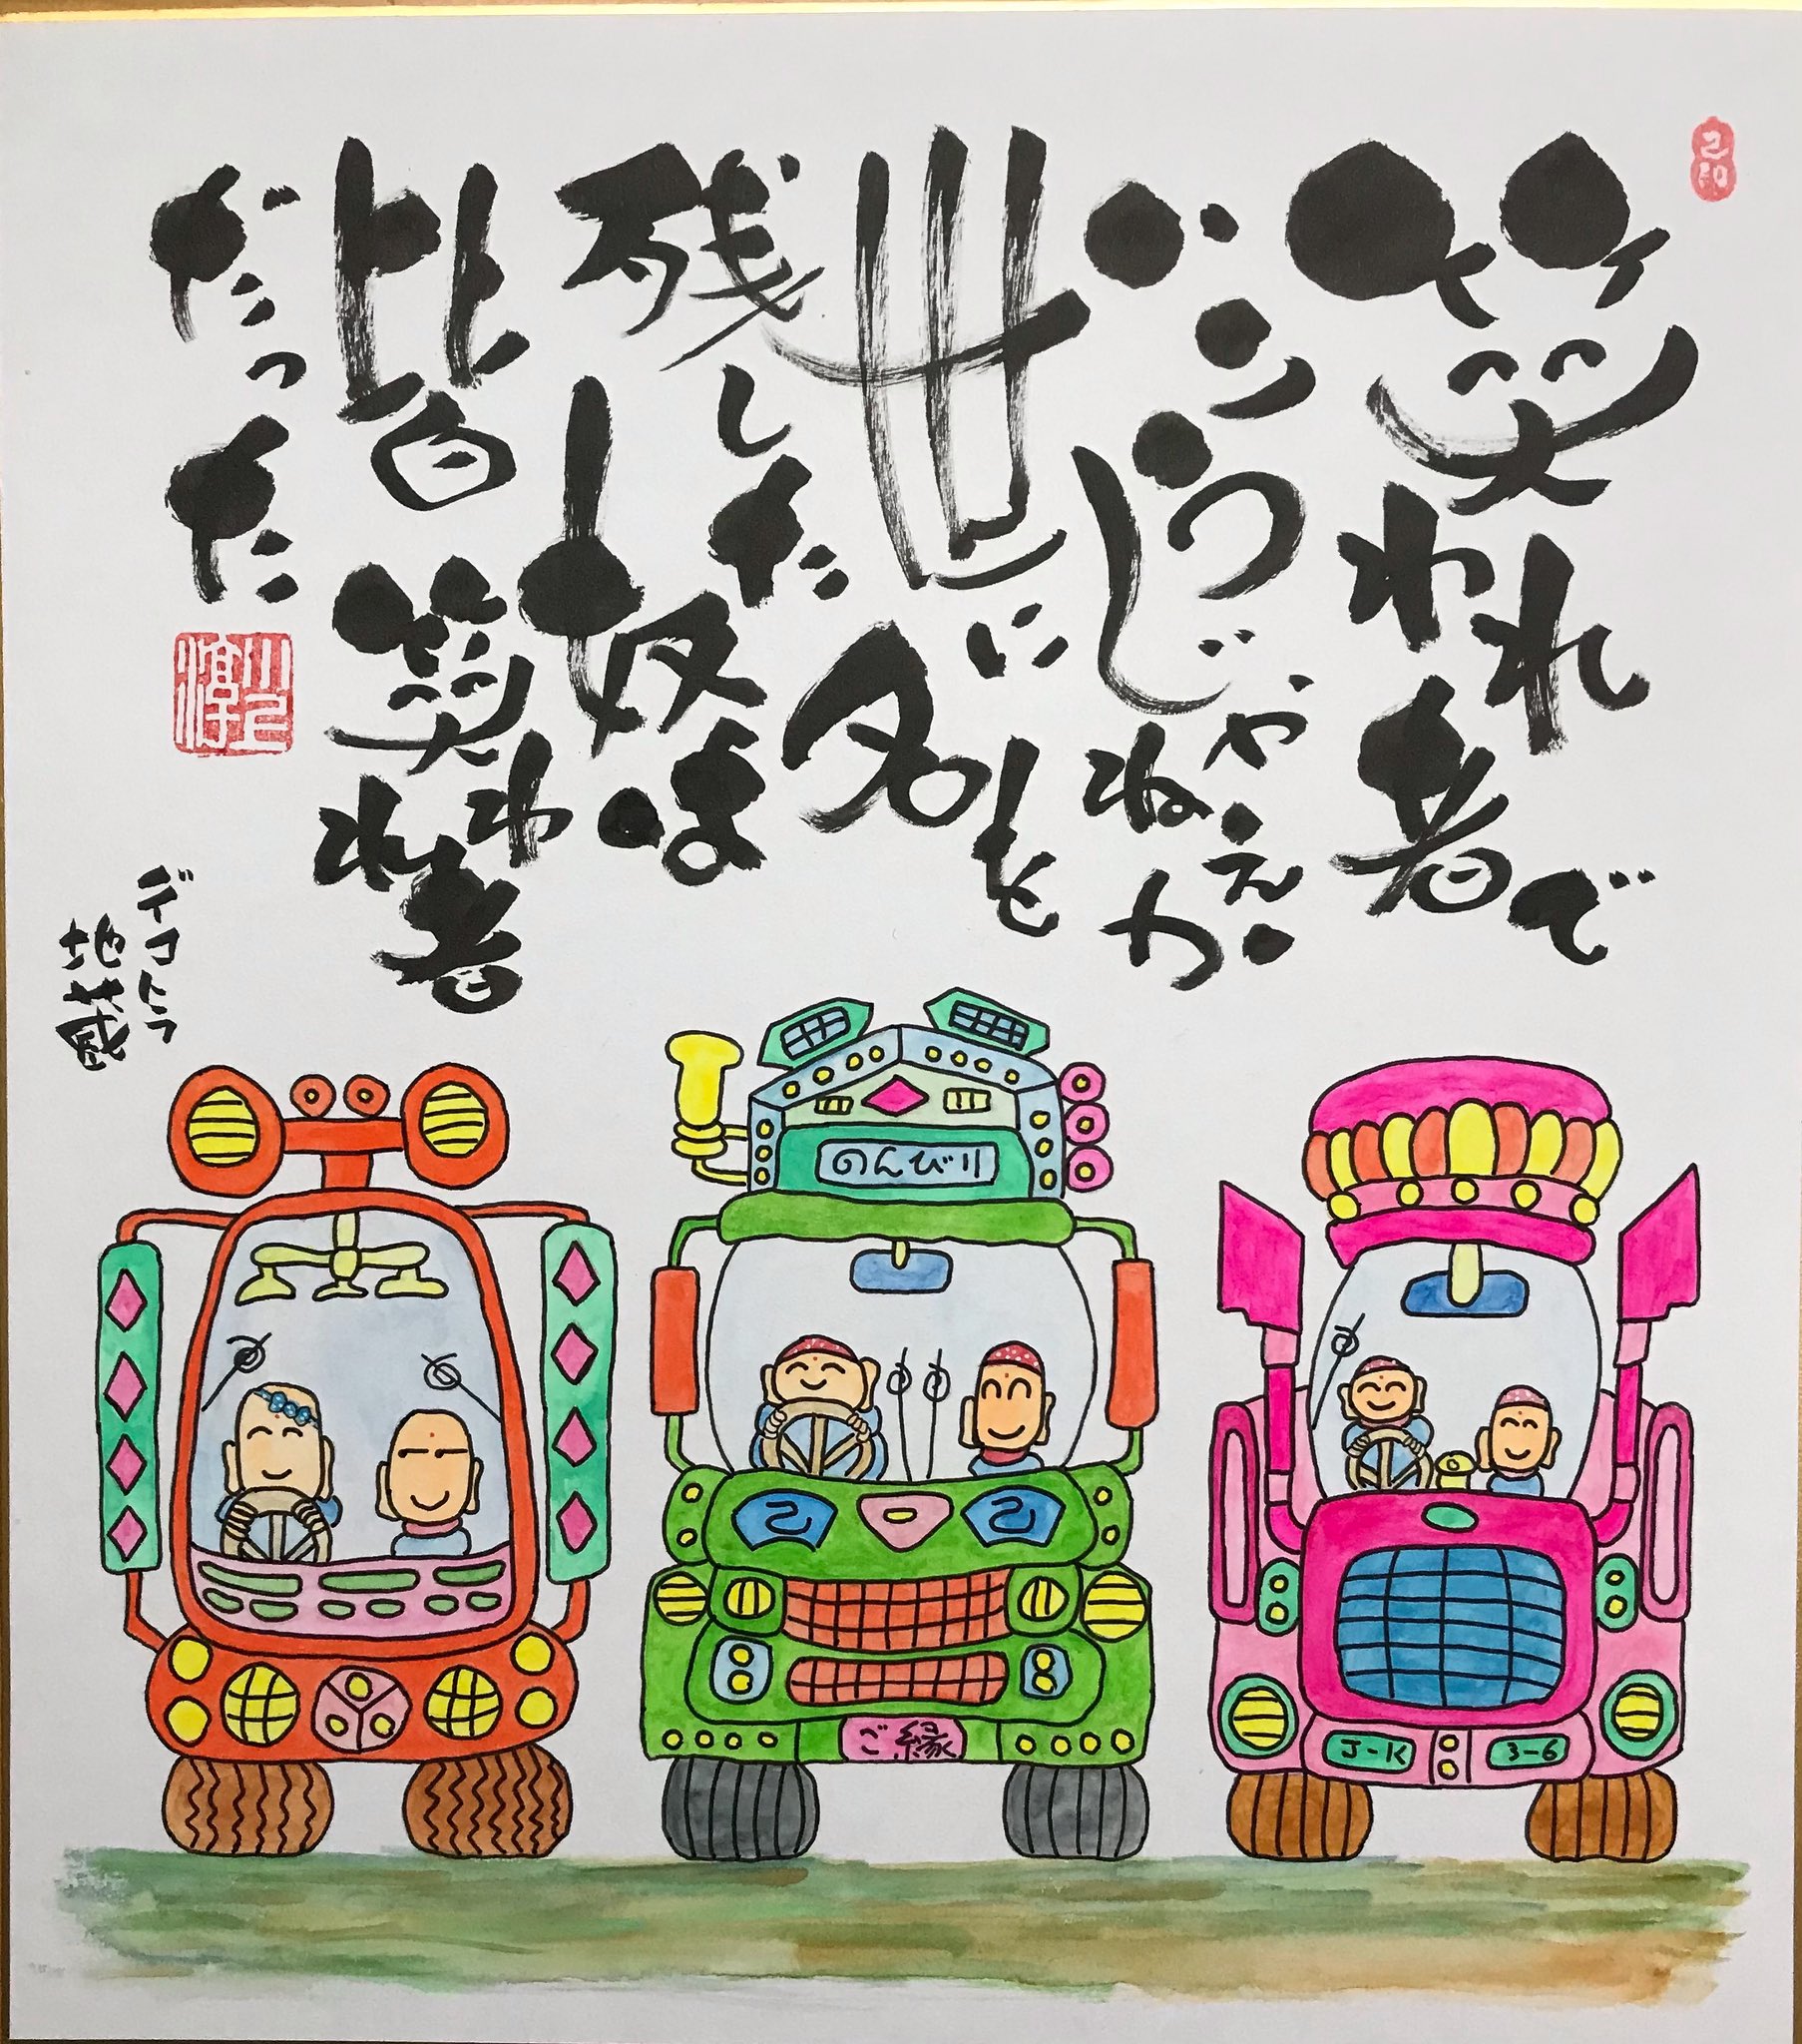 笑われ者で
いいじゃねえか
世に名を
残した奴は
皆笑われ者
だった
デコトラ
地蔵
のんびり
ご縁
J-K
3-6